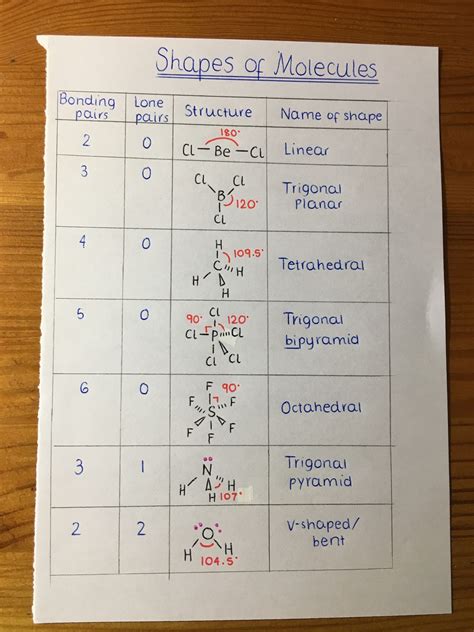 Shapes of Molecules
Bonding pairs Lone pairs Structure Name of shape
2 0 Cl Be Cl 180° Linear
3 0 Cl Cl B Cl 120° Trigonal Planar
4 0 H C H H H 109.5° Tetrahedral
5 0 Cl Cl P Cl Cl Cl 90° 120° Trigonal bipyramid
6 0 F F F S F F F 90° Octahedral
3 1 N H H H 107° Trigonal pyramid
2 2 O H H 104.5° V-shaped/ bent